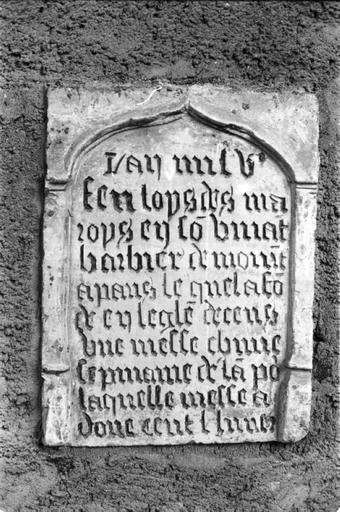 Lan mil Vᶜ
Een lops des ma
rops en sō vivāt
barbier de mont
apaus le quel a fō
de en legle de ceus
vne messe chune
sepmaine de lā po
laquelle messe a
done cent l livres